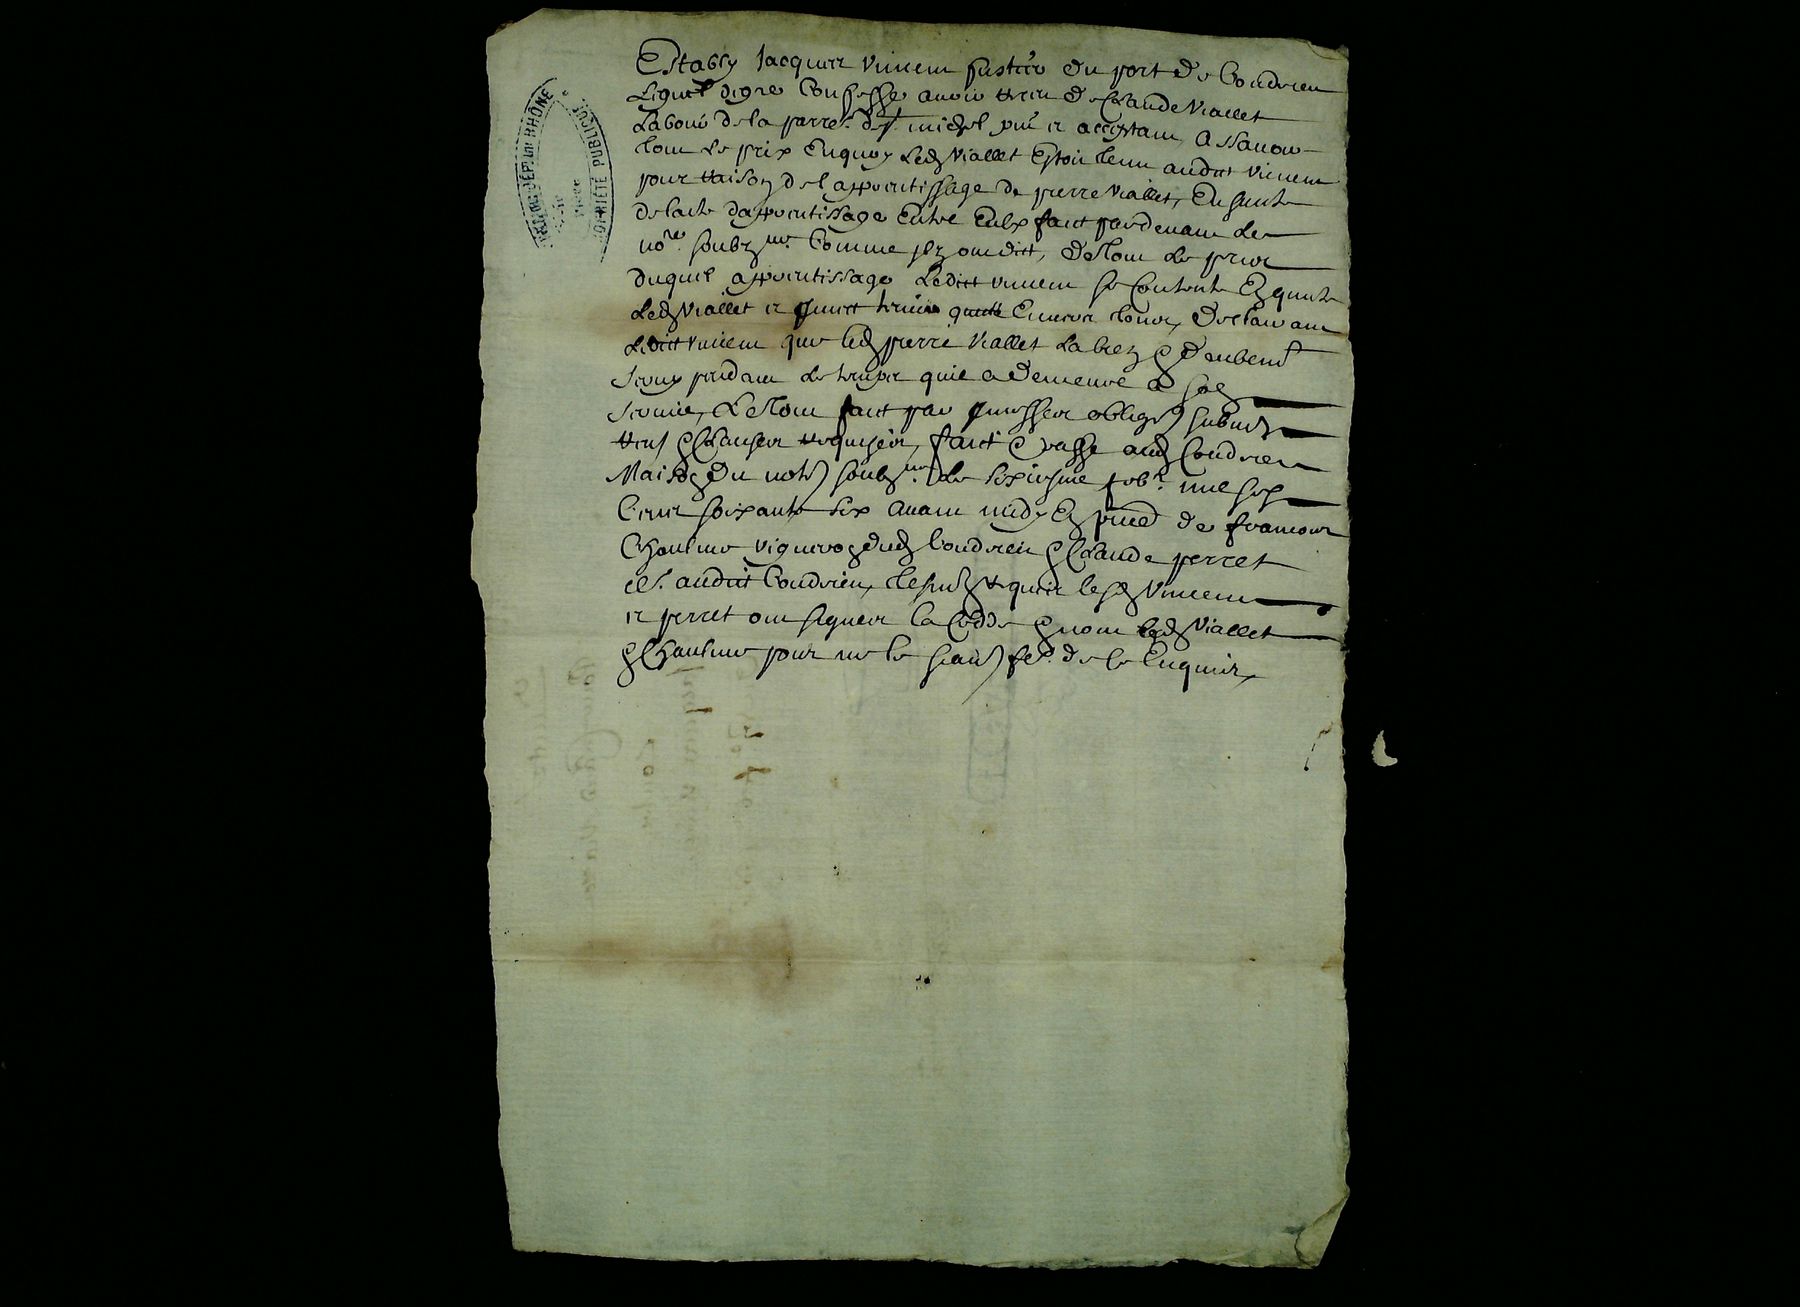 Estably Jacques Vincent fustier du port de Condrieu
Lequel de gre confesse avoir receu de Claude Viallet
Labour de la parre. de St. michel pnt et acceptant Assavoir
tout le prix enquoy led Viallet estoit tenu audict vincent
pour raison de l'apprentissage de pierre viallet, En suitte
de lacte dapprentissage entre eulx faict pardevant le
nore. soubzne. comme ilz ont dict, de tout le pris
duquel apprentissage ledict vincent se contente En quitte
led Viallet et promet tenir quitte Envers tous, declarant
ledict vincent que led pierre Viallet la bien & deubemt
servy pendant le temps quil a demeure a son
service, Le tout faict par
& clauses requises, faict & passe aud Condrieu
Maison du notre soubzne. le sixiesme febr. mil six
cent soixante six avant midy En pnce de francois
Chaulme vigneron dud Condrieu & Claude perret
audict Condrieu, tesmoings requis lesd Vincent
et perret ont signer la cedde & non led Viallet
& Chaulme pour ne le scavoir de ce enquis,
ARCH. DU DEPT DU RHÔNE
PROPRIÉTÉ PUBLIQUE